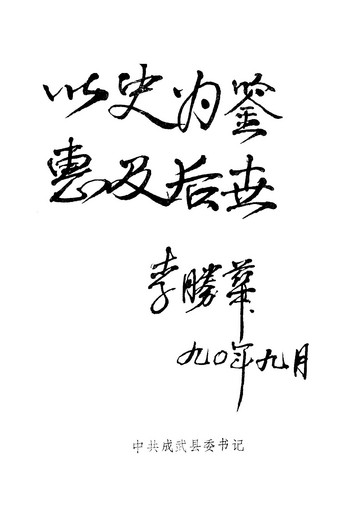 以史为鉴
惠及后世
李勝華
九〇年九月
中共成武县委书记